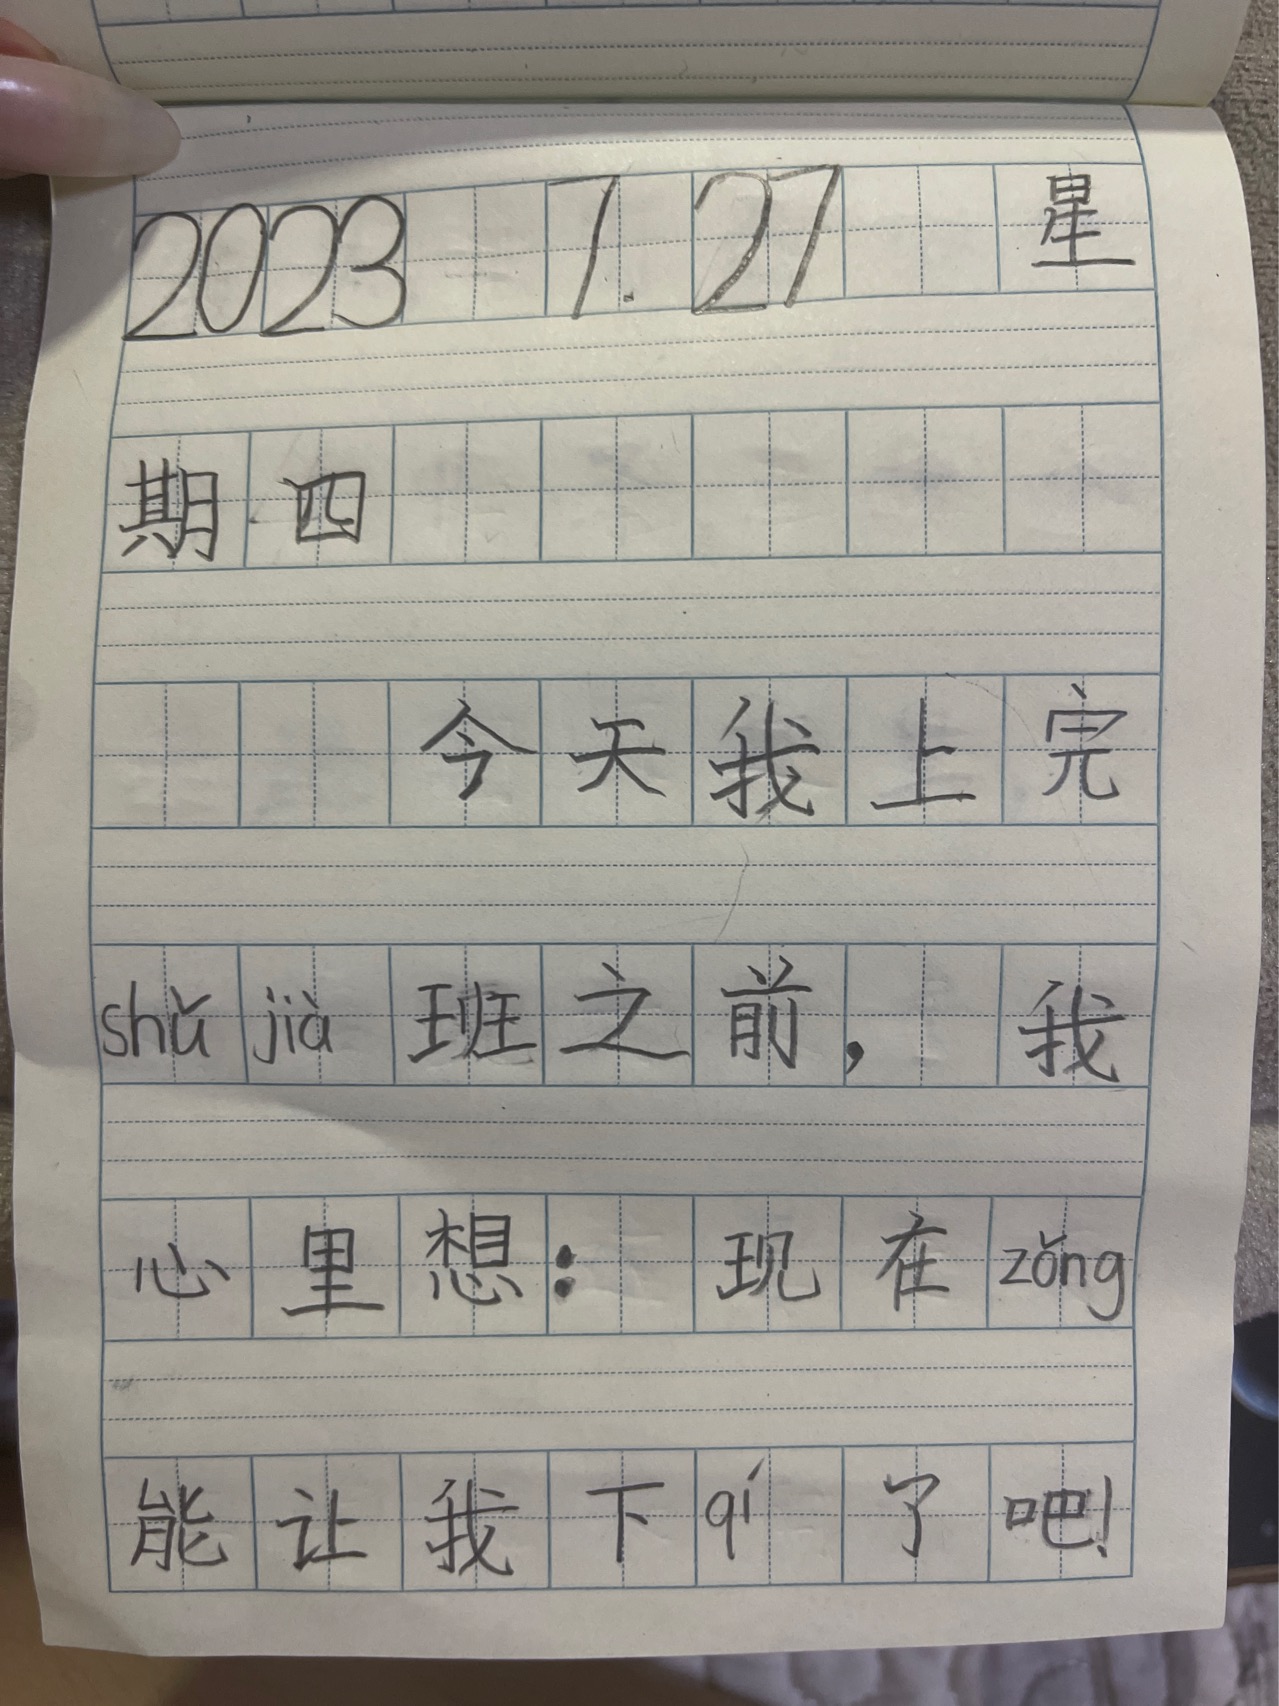 2023 7.27 星
期四
今天我上完
shǔ jià 班之前，我
心里想：现在 zǒng
能让我下 qí 了吧！